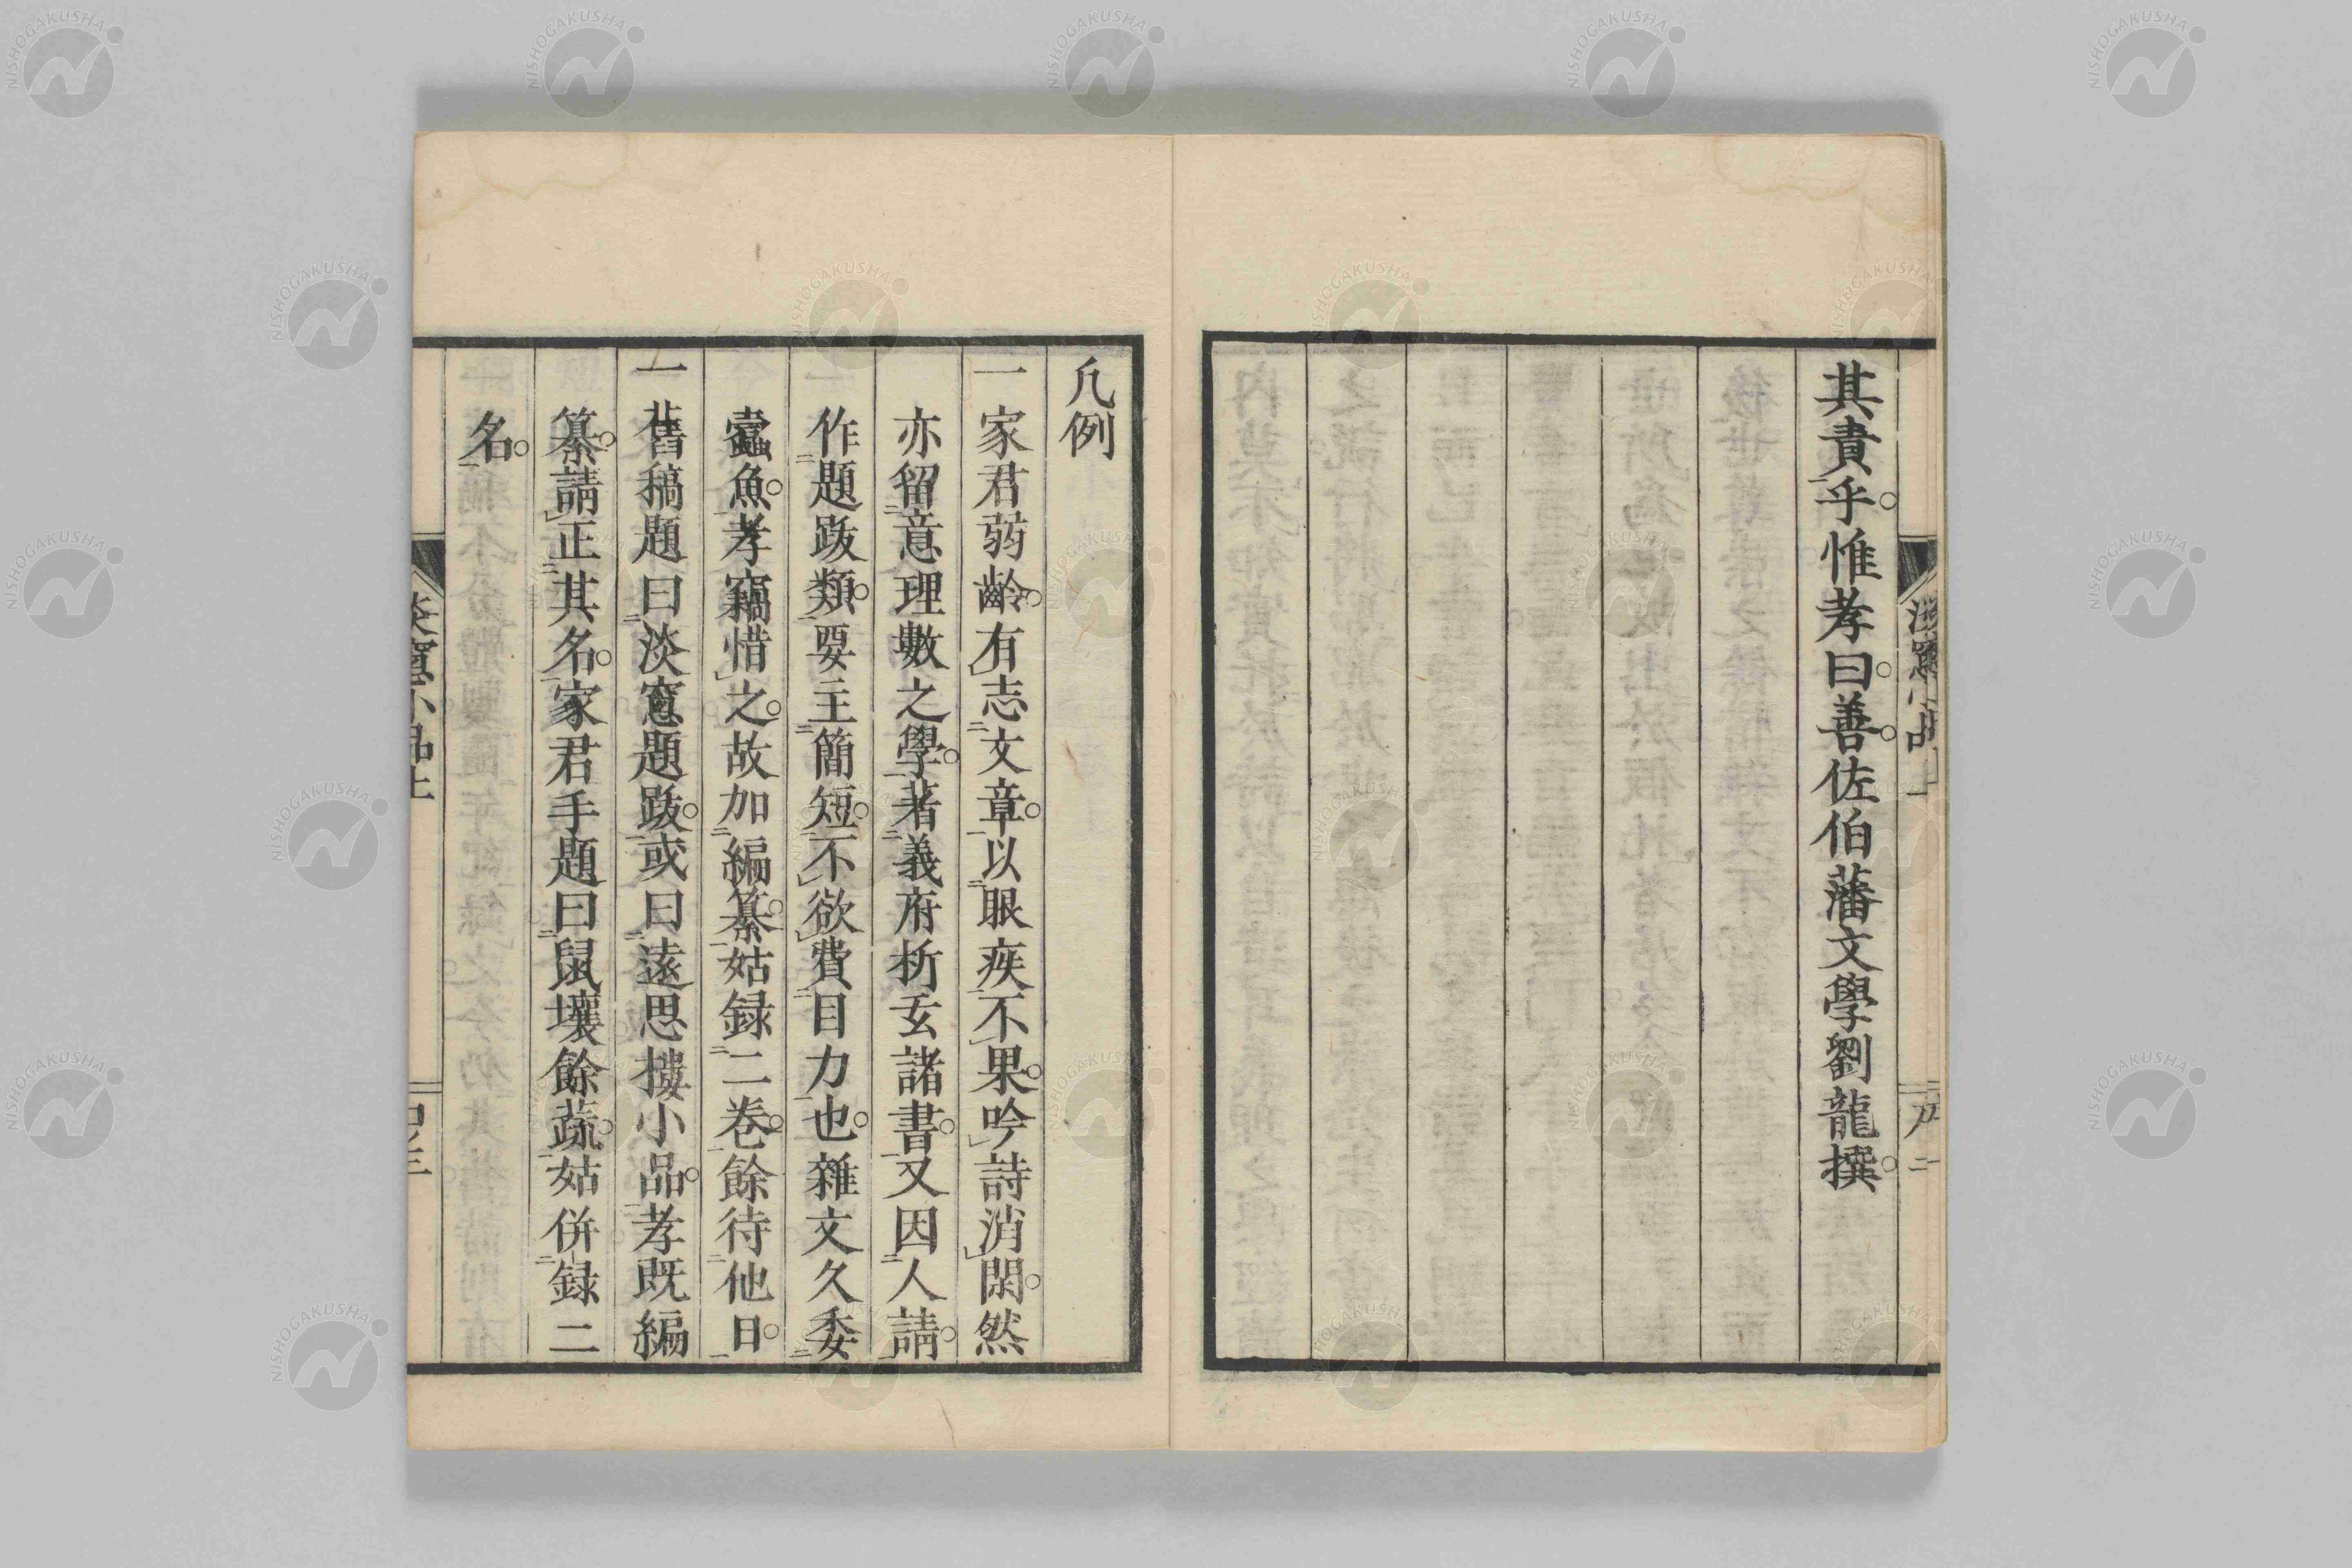 其貴乎。惟孝曰。善。佐伯藩文學劉龍撰。
凡例
一家君弱齡。有志文章。以眼疾不果。吟詩消閑。然
亦留意理數之學。著義府析玄諸書。又因人請。
作題跋類。要主簡短。不欲費目力也。雜文久委
蠧魚。孝竊惜之。故加編纂。姑録二卷。餘待他日。
一舊稿題曰淡窻題跋。或曰遠思摟小品。孝既編
纂。請正其名。家君手題曰鼠壤餘蔬。姑併録二
名。
NISHOGAKUSHA